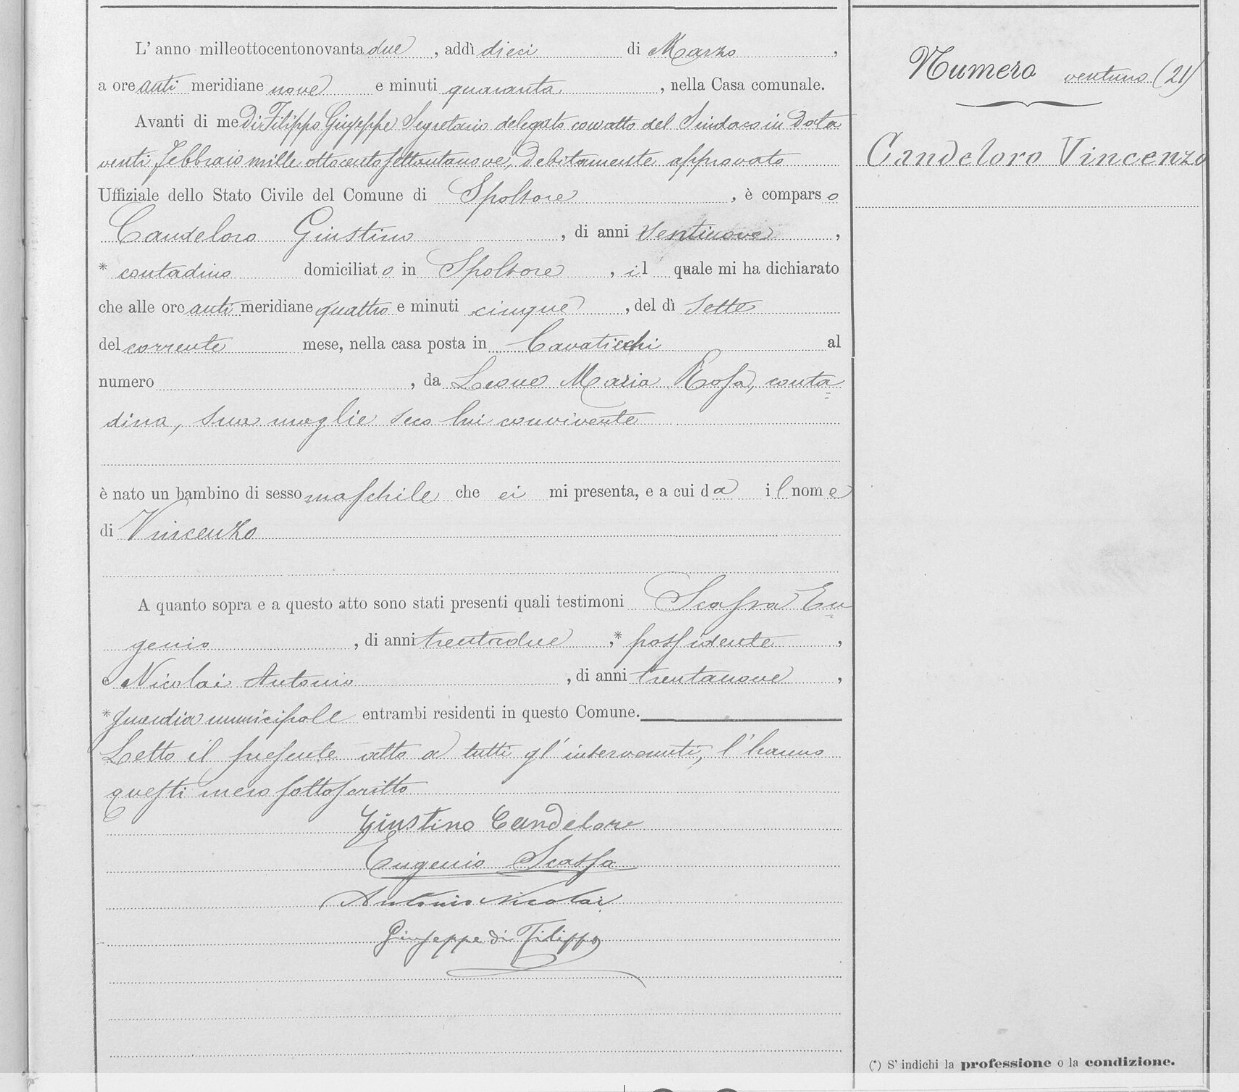 L' anno milleottocentonovanta due, addì dieci di Marzo,
a ore anti meridiane nove e minuti quaranta, nella Casa comunale.
Avanti di me Di Filippo Giuseppe Segretario delegato con atto del Sindaco in data
venti Febbraio mille ottocento settantanove, debitamente approvato
Uffiziale dello Stato Civile del Comune di Spoltore, è comparso
Candeloro Giustino, di anni ventinove,
* contadino domiciliato in Spoltore, il quale mi ha dichiarato
che alle ore anti meridiane quattro e minuti cinque, del dì sette
del corrente mese, nella casa posta in Cavaticchi al
numero , da Leone Maria Rosa, conta
dina, sua moglie seco lui convivente
è nato un bambino di sesso maschile che ei mi presenta, e a cui dà il nome
di Vincenzo
A quanto sopra e a questo atto sono stati presenti quali testimoni Eu
genio, di anni trentadue, * possidente,
e Nicolai Antonio, di anni trentanove,
* guardia municipale entrambi residenti in questo Comune.
Letto il presente atto a tutti gl'intervenuti, l'hanno
questi meco sottoscritto
Giustino Candeloro
Eugenio
Antonio Nicolai
Giuseppe di Filippo
Numero ventuno (21)
Candeloro Vincenzo
(*) S' indichi la professione o la condizione.